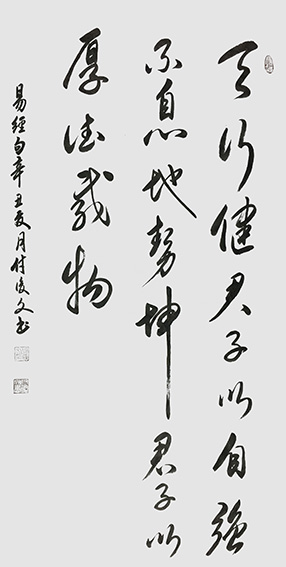 天行健君子以自强
不息地势坤君子以
厚德载物
易经句辛丑夏月付俊文书